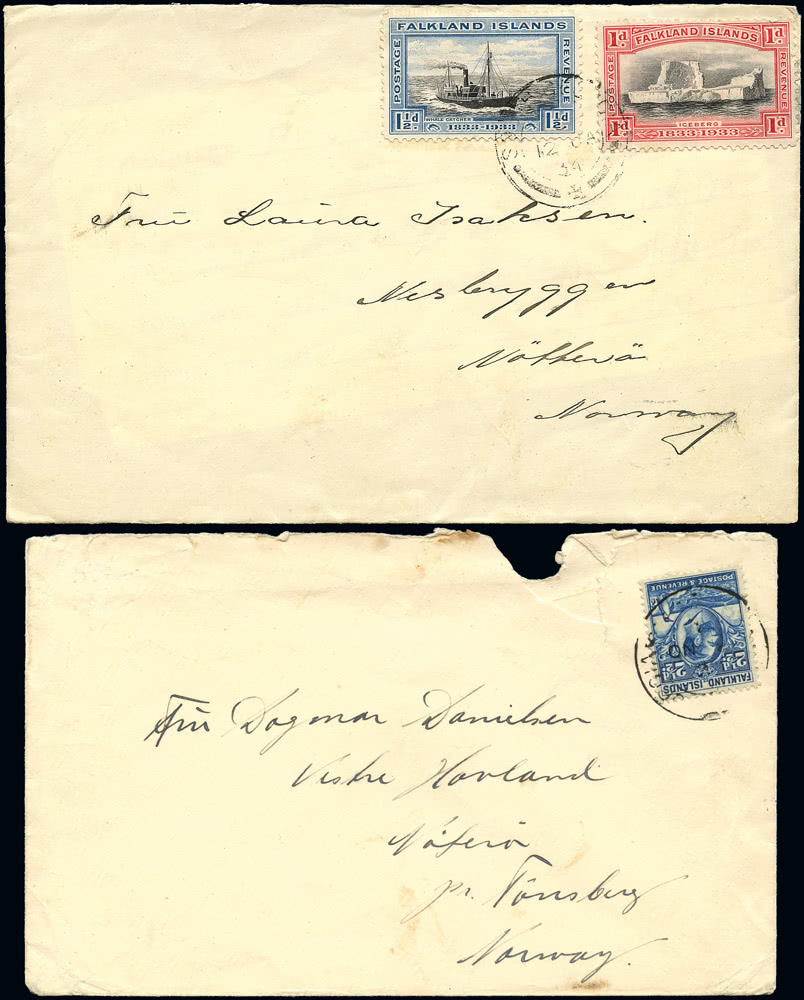 FALKLAND ISLANDS
POSTAGE
REVENUE
WHALE CATCHER
1½d. 1833-1933 1½d.
1d. FALKLAND ISLANDS 1d.
POSTAGE
REVENUE
ICEBERG
1d. 1833-1933 1d.
12
34
Frü Laura Isaksen.
Nesbryggen
Nötterö
Norway
POSTAGE & REVENUE
2½d 2½d
FALKLAND ISLANDS
Frü Dagmar Danielsen
Vestre Havland
Nöterö
pr. Tönsberg
Norway.